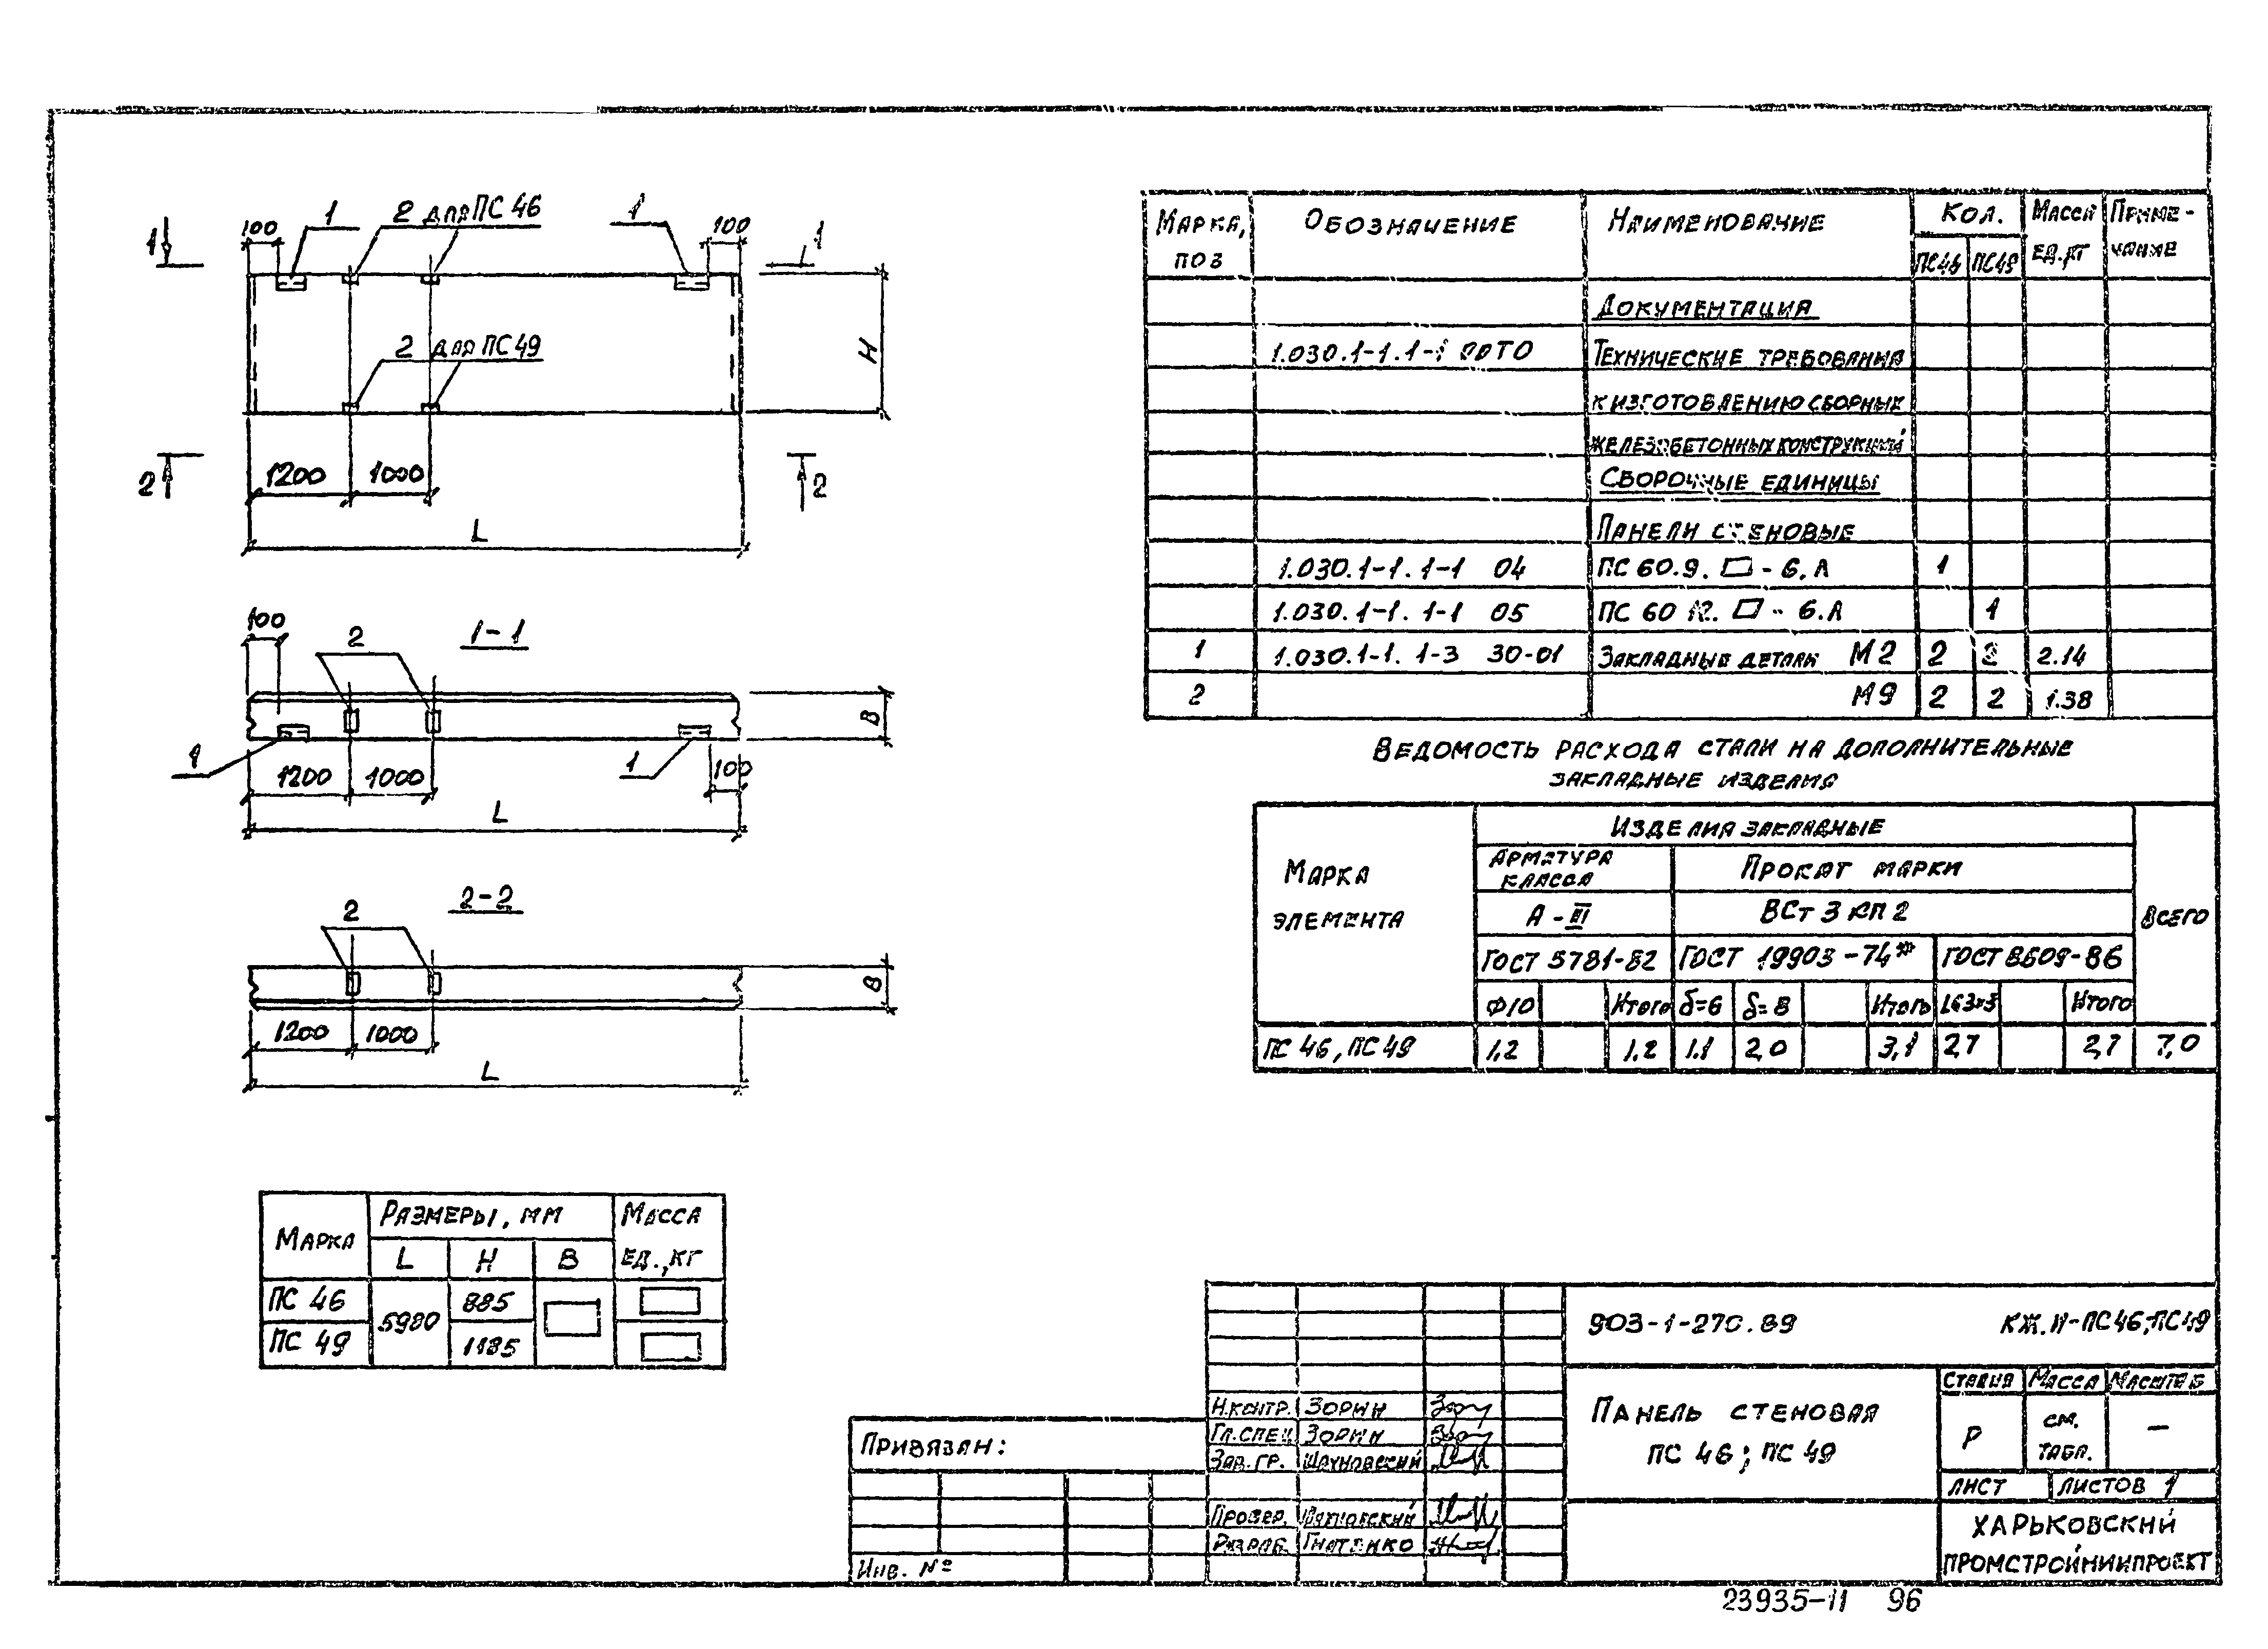 1 2 для ПС 46 1
100 100
1 1
2 для ПС 49
H
1200 1000
2 2
L
1-1
100 2
B
1 1
1200 1000 100
L
2-2
2
B
1200 1000
L
Марка Размеры, мм Масса ед., кг
L H B
ПС 46 5980 885
ПС 49 1185
Марка, поз Обозначение Наименование Кол. Масса ед. кг Примечание
ПС46 ПС49
Документация
1.030.1-1.1-1 00ТО Технические требования
к изготовлению сборных
железобетонных конструкций
Сборочные единицы
Панели стеновые
1.030.1-1.1-1 04 ПС 60.9. - 6.А 1
1.030.1-1.1-1 05 ПС 60 12. - 6.А 1
1 1.030.1-1.1-3 30-01 Закладные детали М2 2 2 2.14
2 М9 2 2 1.38
Ведомость расхода стали на дополнительные
закладные изделия
Марка элемента Изделия закладные Всего
Арматура класса Прокат марки
А-III ВСт 3 кп 2
ГОСТ 5781-82 ГОСТ 19903-74* ГОСТ 8509-86
Ф10 Итого δ=6 δ=8 Итого L63х5 Итого
ПС 46, ПС 49 1,2 1.2 1.1 2,0 3,1 2,7 2,7 7,0
903-1-270.89 КЖ.И-ПС46;ПС49
Панель стеновая
ПС 46; ПС 49
Стадия Масса Масштаб
Р см. табл. —
Лист Листов 1
Харьковский
Промстройниипроект
Н.контр. Зорин
Гл.спец Зорин
Зав.гр. Шахновский
Провер. Шахновский
Разраб. Гнатенко
Привязан:
Инв. №
23935-11 96